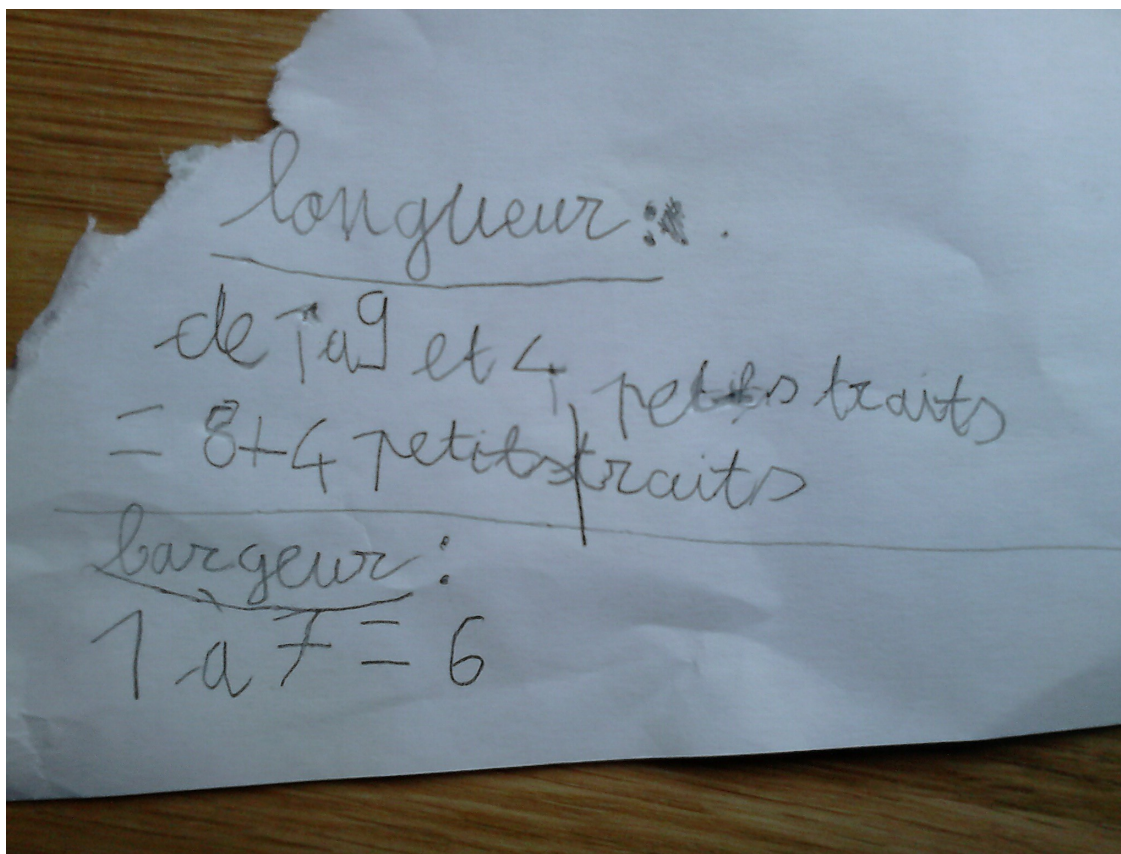 longueur :
de 1 a 9 et 4 petits traits
= 8+4 petits traits
largeur :
1 a 7 = 6